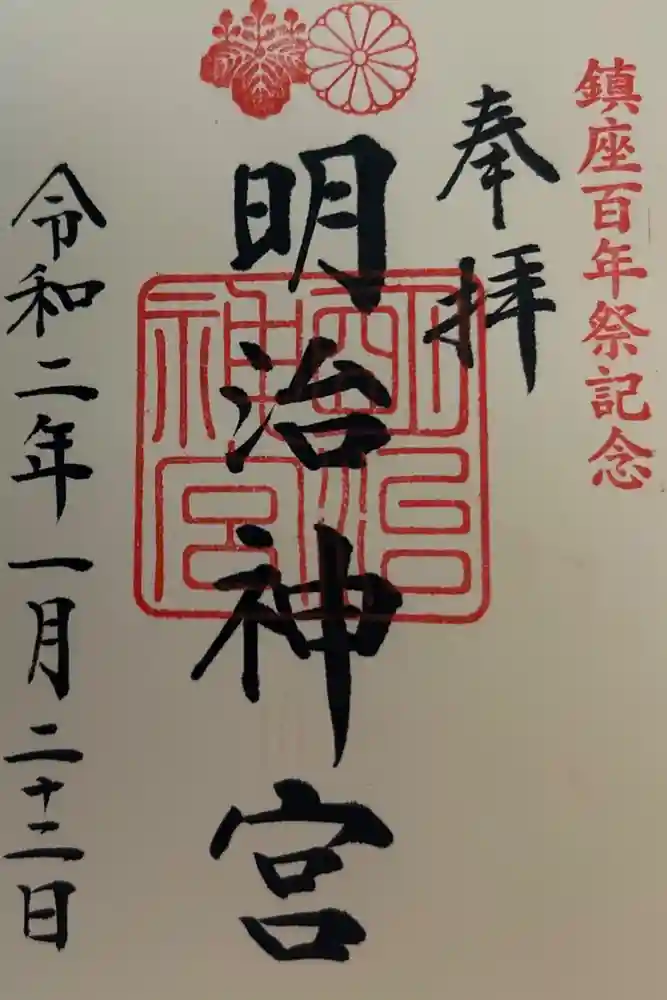 鎮座百年祭記念
奉拝
明治神宮
明治神宮
令和二年一月二十二日